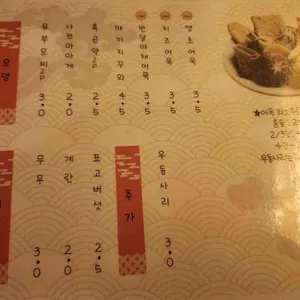 오뎅
유부모찌2p 3.0
사쯔마아게 2.0
흑곤약2p 2.5
야끼치꾸와 4.5
반달야채어묵 3.5
치즈어묵 3.5
땡초어묵 3.5
무우 3.0
계란 2.0
표고버섯 2.5
추가
우동사리 3.0
★어묵 최소
혼술:
2/3인
우동사리는